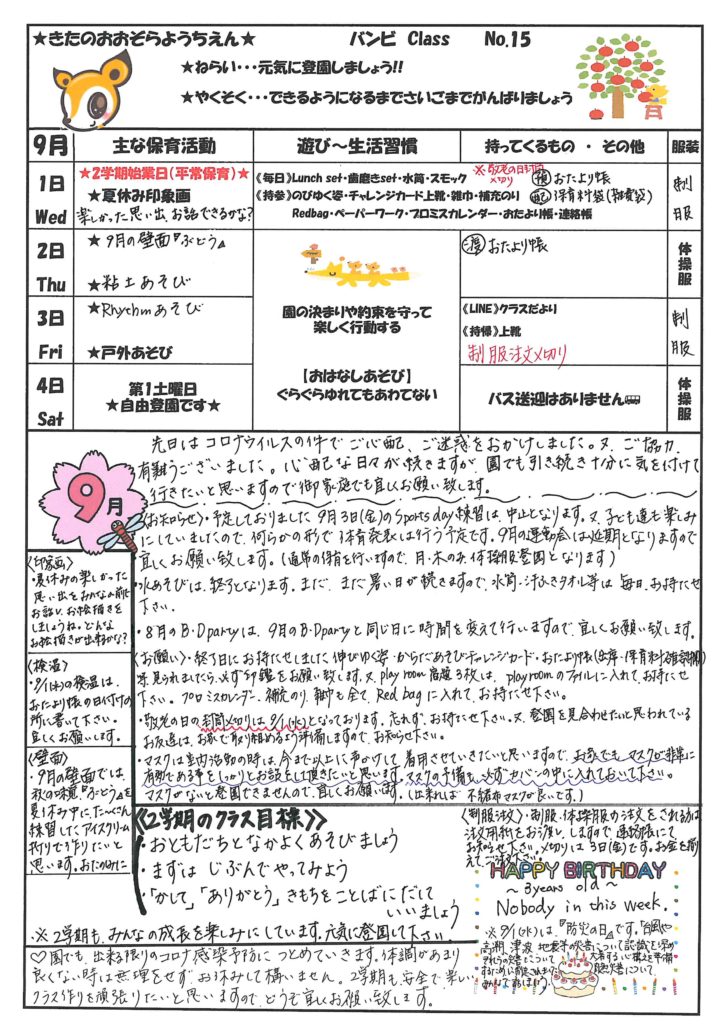 ★きたのおおぞらようちえん★ バンビ Class No.15
★ねらい・・・元気に登園しましょう!!
★やくそく・・・できるようになるまでさいごまでがんばりましょう
9月 主な保育活動 遊び～生活習慣 持ってくるもの ・ その他 服装
1日 Wed
★2学期始業日(平常保育)★
★夏休み印象画
楽しかった思い出、お話できるかな?
《毎日》Lunch set・歯磨きset・水筒・スモック
《持参》のびゆく姿・チャレンジカード上靴・雑巾・補充のり
Redbag・ペーパーワーク・プロミスカレンダー・おたより帳・連絡帳
※敬老の日封筒〆切り
おたより帳
保育料袋(雑費袋)
制服
2日 Thu
★9月の壁面『ぶどう』
★粘土あそび
園の決まりや約束を守って
楽しく行動する
【おはなしあそび】
ぐらぐらゆれてもあわてない
渡 おたより帳
体操服
3日 Fri
★Rhythmあそび
★戸外あそび
《LINE》クラスだより
《持帰》上靴
制服注文〆切り
制服
4日 Sat
第1土曜日
★自由登園です★
バス送迎はありません
体操服
9月
先日はコロナウイルスの件でご心配、ご迷惑をおかけしました。又、ご協力、
有難うございました。心配な日々が続きますが、園でも引き続き十分に気を付けて
行きたいと思いますので御家庭でも宜しくお願い致します。
〈お知らせ〉・予定しておりました9月3日(金)のSports day練習は、中止となります。又、子ども達も楽しみ
にしていましたので、何らかの形で体育発表は行う予定です。9月の運動会は延期となりますので
宜しくお願い致します。(通常の保育を行いますので、月・木のみ体操服登園となります)
・水あそびは、終了となります。まだ、まだ暑い日が続きますので、水筒・汗ふきタオル等は毎日、お持たせ
下さい。
・8月のB・Dpartyは、9月のB・Dpartyと同じ日に時間を変えて行いますので、宜しくお願い致します。
〈お願い〉・終了日にお持たせしました伸びゆく姿・からだあそびチャレンジカード・おたより帳
見られましたら、必ず印鑑をお願い致します。又、play room 3枚は、playroomのファイルに入れて、お持たせ
下さい。プロミスカレンダー、補充のり、雑巾も全て、Red bagに入れて、お持たせ下さい。
・敬老の日の封筒〆切りは9/1(水)となっております。忘れず、お持たせ下さい。又、登園を見合わせたいと思われている
お友達は、お家で取り組めるよう準備しますので、お知らせ下さい。
・マスクは室内活動の時は、今まで以上に声かけして着用させていきたいと思いますので、お家でもマスクが非常に
有効である事をしっかりとお話をして頂きたいと思います。マスクの予備も必ずカバンの中に入れておいて下さい。
マスクがないと登園できませんので、宜しくお願いします。(出来れば不織布マスクが良いです。)
〈印象画〉
・夏休みの楽しかった
思い出をみんなの前で
お話し、お絵描きを
しましょうね。どんな
お絵描きが出来るかな?
〈検温〉
・9/1(水)の検温は、
おたより帳の日付けの
所に書いて下さい。
宜しくお願いします。
〈壁面〉
・9月の壁面では、
秋の味覚『ぶどう』を
夏休み中に、たくさん
練習したアイスクリーム
折りで作りたいと
思います。お楽しみに
《2学期のクラス目標》
・おともだちとなかよくあそびましょう
・まずは じぶんでやってみよう
・「かして」「ありがとう」きもちをことばにだして
いいましょう
※2学期も、みんなの成長を楽しみにしています。元気に登園して下さい。
〈制服注文〉・制服、体操服の注文をされる方は
注文用紙をお渡し、しますので、連絡帳にて
お知らせ下さい。〆切りは3日(金)です。お金を揃
えてご注文下さい。
HAPPY BIRTHDAY
～3years old～
Nobody in this week.
※9/1(水)は、『防災の日』です。台風や
高潮、津波、地震等の災害について認識を深め
♡園でも、出来る限りのコロナ感染予防につとめていきます。体調があまり
良くない時は無理をせず、お休みして構いません。2学期も安全で楽しい
クラス作りを頑張りたいと思いますので、どうぞ宜しくお願い致します。